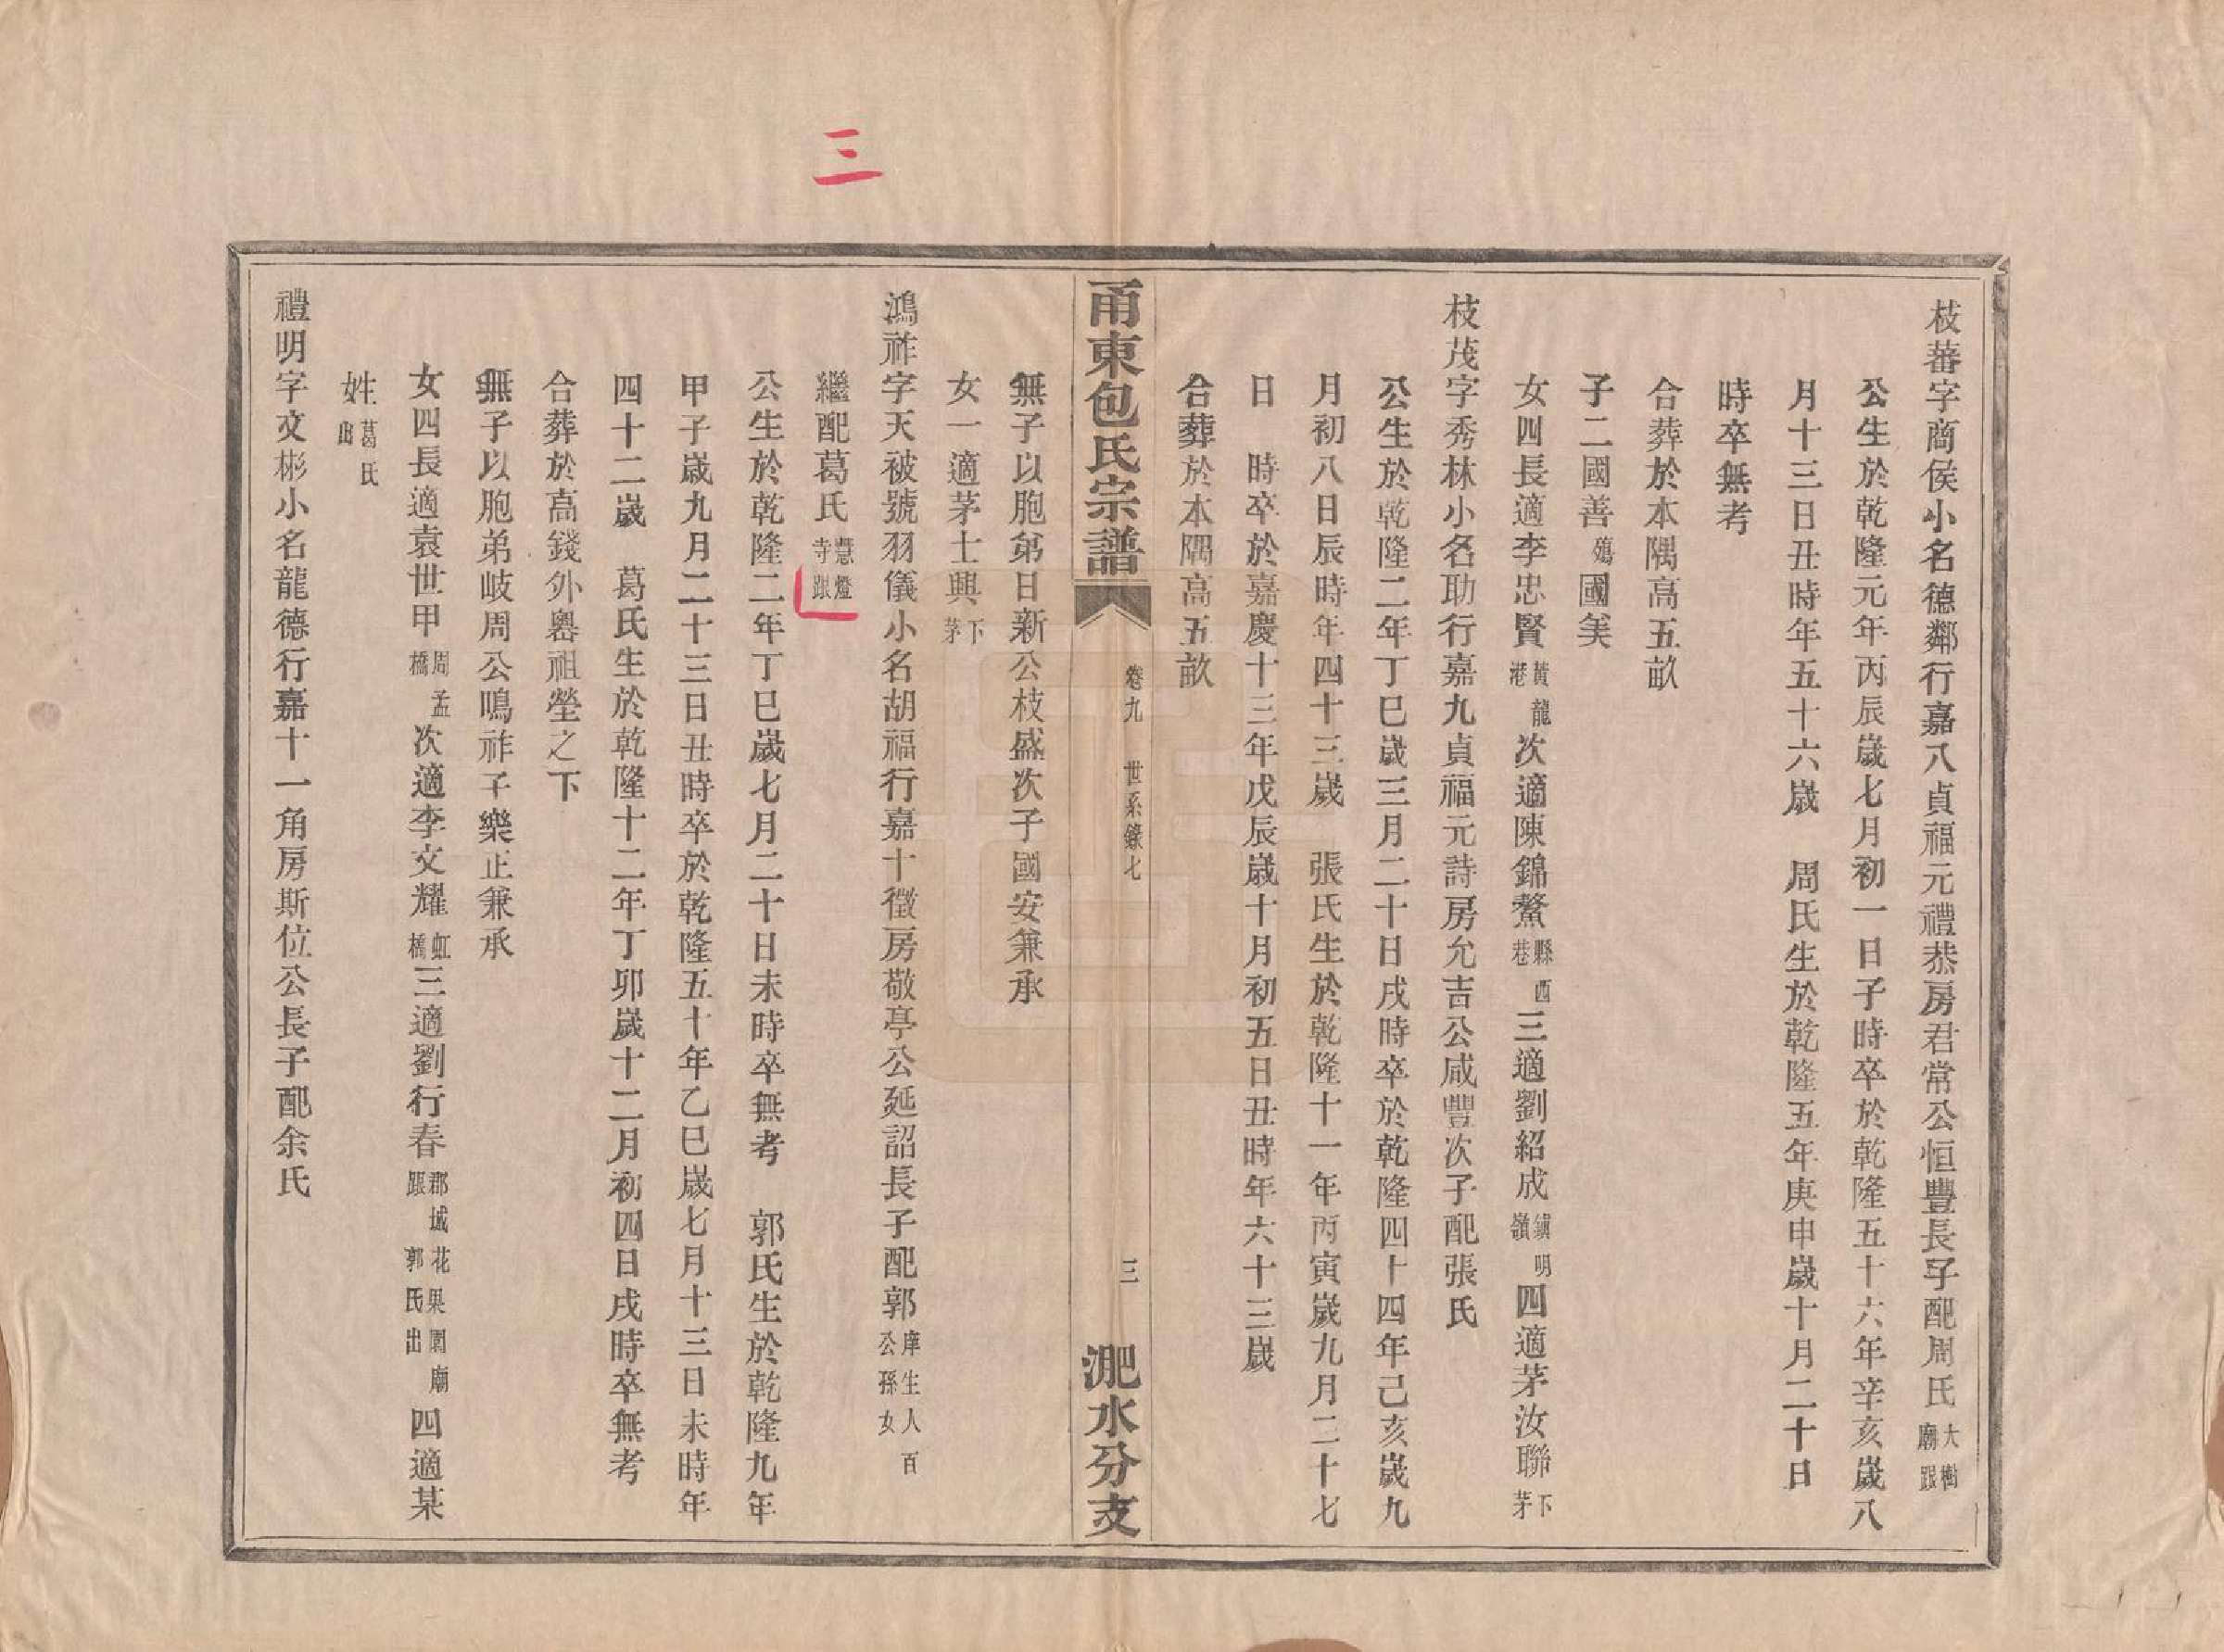 枝蕃字商侯小名德鄰行嘉八貞福元禮恭房君常公恒豐長子配周氏大樹廟跟
公生於乾隆元年丙辰歲七月初一日子時卒於乾隆五十六年辛亥歲八
月十三日丑時年五十六歲　周氏生於乾隆五年庚申歲十月二十日
時卒無考
合葬於本隅高五畝
子二國善殤國美
女四長適李忠賢黃龍港次適陳錦鰲縣西巷三適劉紹成鎮明嶺四適茅汝聯下茅
枝茂字秀林小名助行嘉九貞福元詩房允吉公咸豐次子配張氏
公生於乾隆二年丁巳歲三月二十日戌時卒於乾隆四十四年己亥歲九
月初八日辰時年四十三歲　張氏生於乾隆十一年丙寅歲九月二十七
日　時卒於嘉慶十三年戊辰歲十月初五日丑時年六十三歲
合葬於本隅高五畝
甬東包氏宗譜　卷九　世系錄七　三　淝水分支
無子以胞弟日新公枝盛次子國安兼承
女一適茅士興下茅
鴻祚字天被號羽儀小名胡福行嘉十徵房敬亭公延詔長子配郭庠生人百公孫女
繼配葛氏慧燈寺跟
公生於乾隆二年丁巳歲七月二十日未時卒無考　郭氏生於乾隆九年
甲子歲九月二十三日丑時卒於乾隆五十年乙巳歲七月十三日未時年
四十二歲　葛氏生於乾隆十二年丁卯歲十二月初四日戌時卒無考
合葬於高錢外嶴祖塋之下
無子以胞弟岐周公鳴祚子樂正兼承
女四長適袁世甲周孟橋次適李文耀虹橋三適劉行春郡城花果園廟跟郭氏出四適某
姓葛氏出
禮明字文彬小名龍德行嘉十一角房斯位公長子配余氏
三